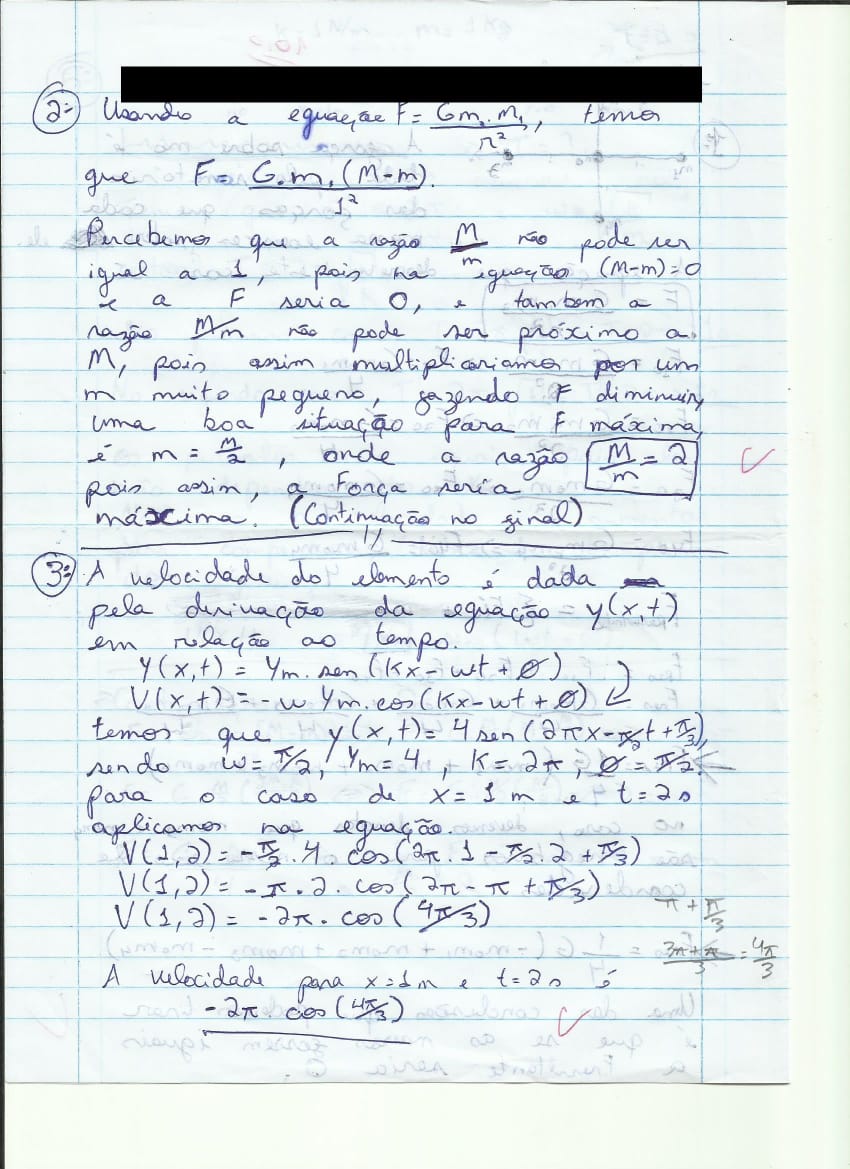 2: Usando a equação F = G m₁ . M₁ / r², temos
que F = G . m . (M-m) / 1².
Percebemos que a razão M/m não pode ser
igual a 1, pois na equação (M-m)=0
e a F seria 0, e tambem a
razão M/m não pode ser próximo a
M, pois assim multiplicariamos por um
m muito pequeno, fazendo F diminuir,
uma boa situação para F máxima,
é m = M/2, onde a razão M/m = 2
pois assim, a Força seria
máxima. (Continuação no final)
3: A velocidade do elemento é dada
pela derivação da equação = y(x,t)
em relação ao tempo.
Y(x,t) = Ym. sen (Kx - wt + ø)
V(x,t) = -w Ym. cos (Kx - wt + ø)
temos que y(x,t) = 4 sen (2πx - π/2 t + π/3),
sendo w = π/2, Ym = 4, K = 2π, ø = π/2.
para o caso de x = 1 m e t = 2 s
aplicamos na equação.
V(1,2) = -π/2 . 4 cos (2π . 1 - π/2 . 2 + π/3)
V(1,2) = -π . 2 . cos (2π - π + π/3)
V(1,2) = -2π . cos (4π/3)
π + π/3
3π + π / 3 = 4π/3
A velocidade para x = 1m e t = 2 s é
-2π cos (4π/3)